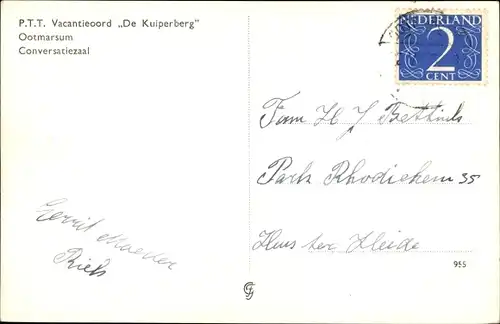 P.T.T. Vacantieoord „De Kuiperberg"
Ootmarsum
Conversatiezaal
NEDERLAND
2
CENT
Fam H J
Park Rhodichem 35
Huis ter Heide
Gerrit
Riek
955